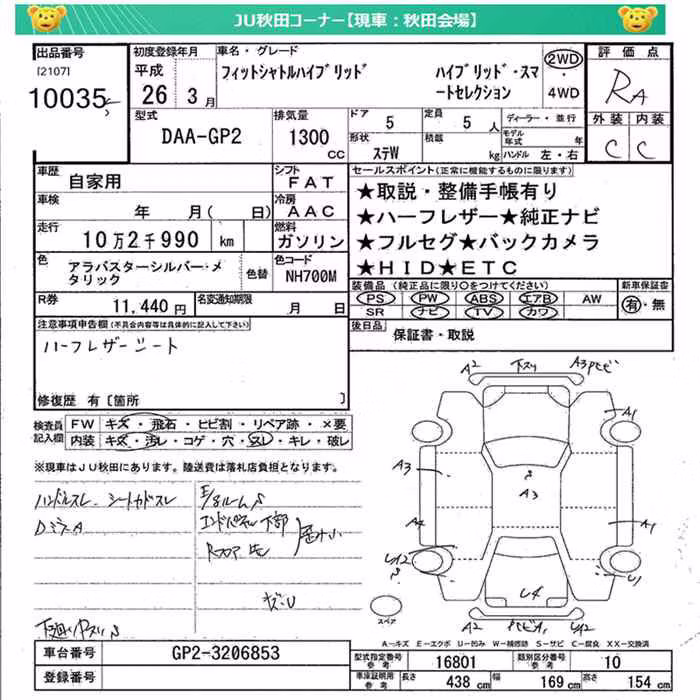 JU秋田コーナー【現車：秋田会場】
出品番号
[2107]
10035
初度登録年月
平成
26年 3月
車名・グレード
フィットシャトルハイブリッド ハイブリッド・スマートセレクション
2WD
・
4WD
評価点
RA
外装 内装
C C
型式
DAA-GP2
排気量
1300
CC
ドア
5
定員
5 人
形状
ステW
積載
kg
ディーラー・並行
モデル年式 年
ハンドル 左・右
車歴
自家用
シフト
FAT
車検
年 月( 日)
冷房
AAC
走行
10万2千990 km
燃料
ガソリン
色
アラバスターシルバー・メタリック
色替
色コード
NH700M
R券
11,440円
名変通知期限
月 日
セールスポイント(正常に機能するものに限ります)
★取説・整備手帳有り
★ハーフレザー★純正ナビ
★フルセグ★バックカメラ
★HID★ETC
装備品 (純正品に限り○をつけてください)
PS PW ABS エアB AW
SR ナビ TV カワ
新車保証書
有・無
後日品
保証書・取説
注意事項申告欄(不具合内容等は具体的に記入して下さい)
ハーフレザーシート
修復歴 有[箇所 ]
検査員記入欄
FW キズ・飛石・ヒビ割・リペア跡・×要
内装 キズ・汚レ・コゲ・穴・スレ・キレ・破レ
※現車はJU秋田にあります。陸送費は落札店負担となります。
ハンドルスレ シートカドスレ
DミラーA
エンドパネル下部
キズ・U
A2 下スリ A3
A1
A3
A3
A4
A1
U2
U4
A2
スペア
A－キズ E－エクボ U－凹み W－補修跡 S－サビ C－腐食 XX－交換済
車台番号
GP2-3206853
登録番号
型式指定番号 参考
16801
類別区分番号 参考
10
車庫証明用 参考
長さ 438 cm
幅 169 cm
高さ 154 cm